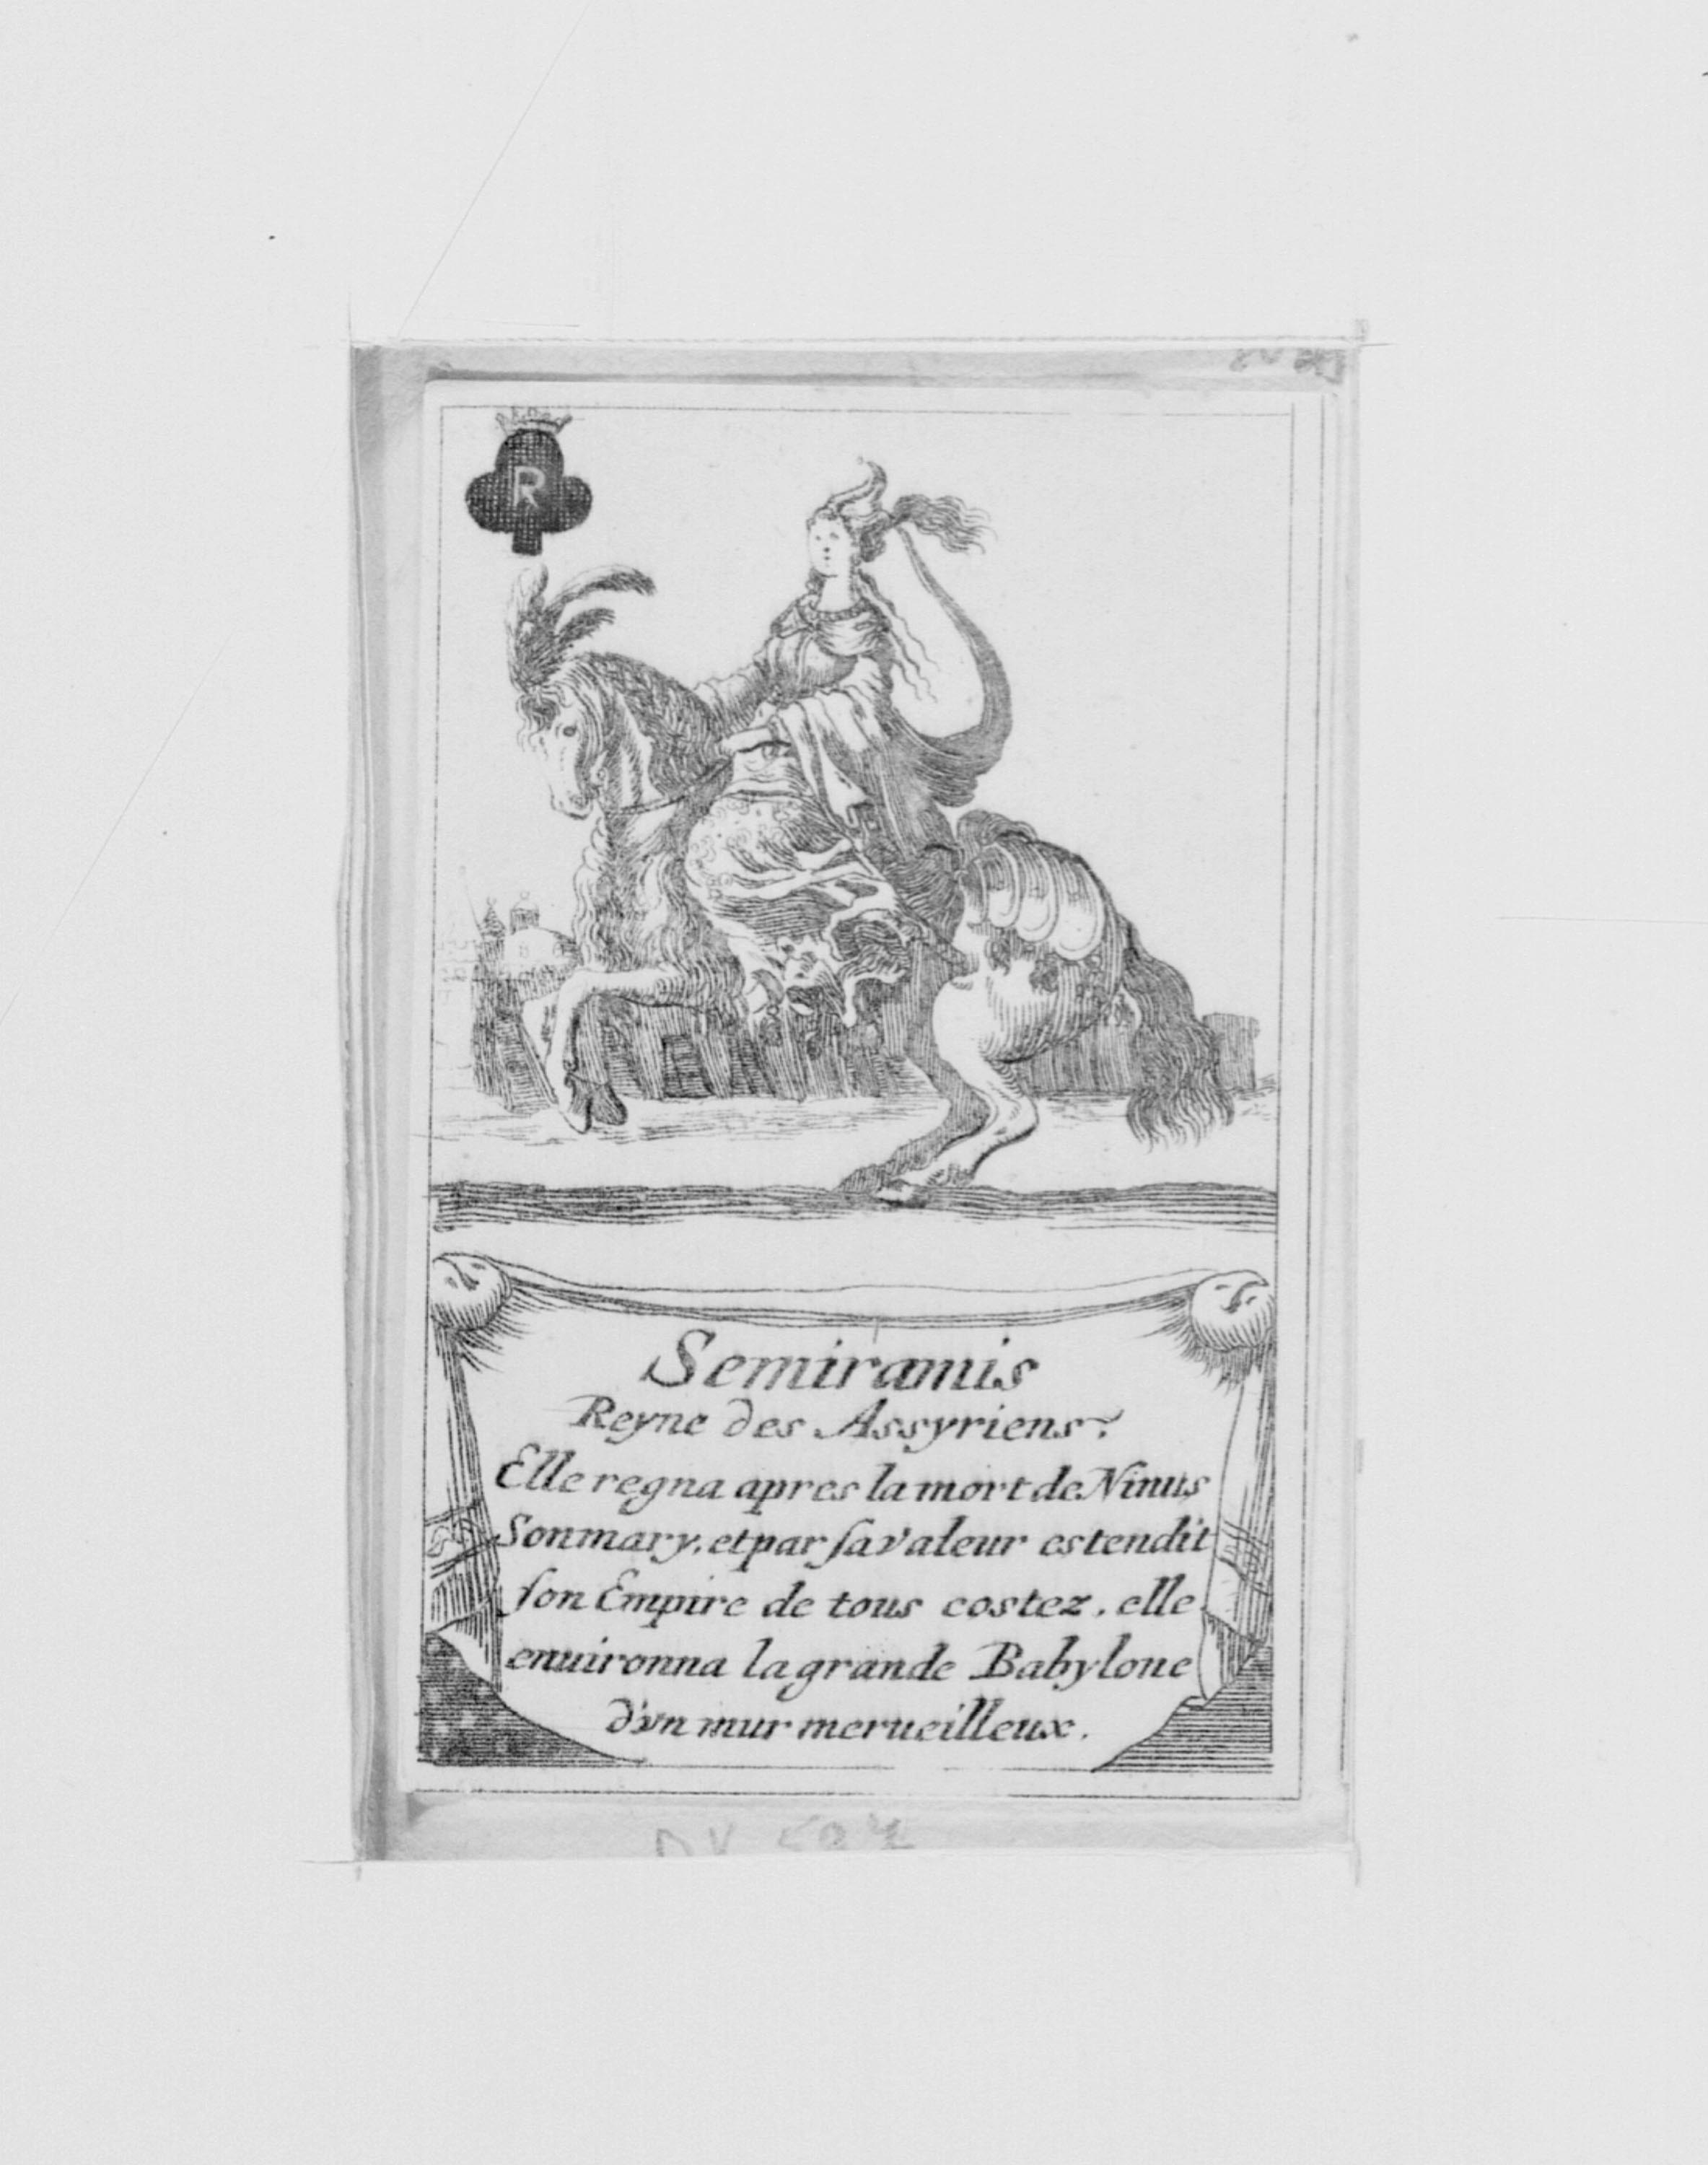 R
Semiramis
Reyne des Assyriens.
Elle regna apres la mort de Ninus
Son mary, et par ſa valeur estendit
ſon Empire de tous costez, elle
enuironna la grande Babylone
d'vn mur merueilleux.